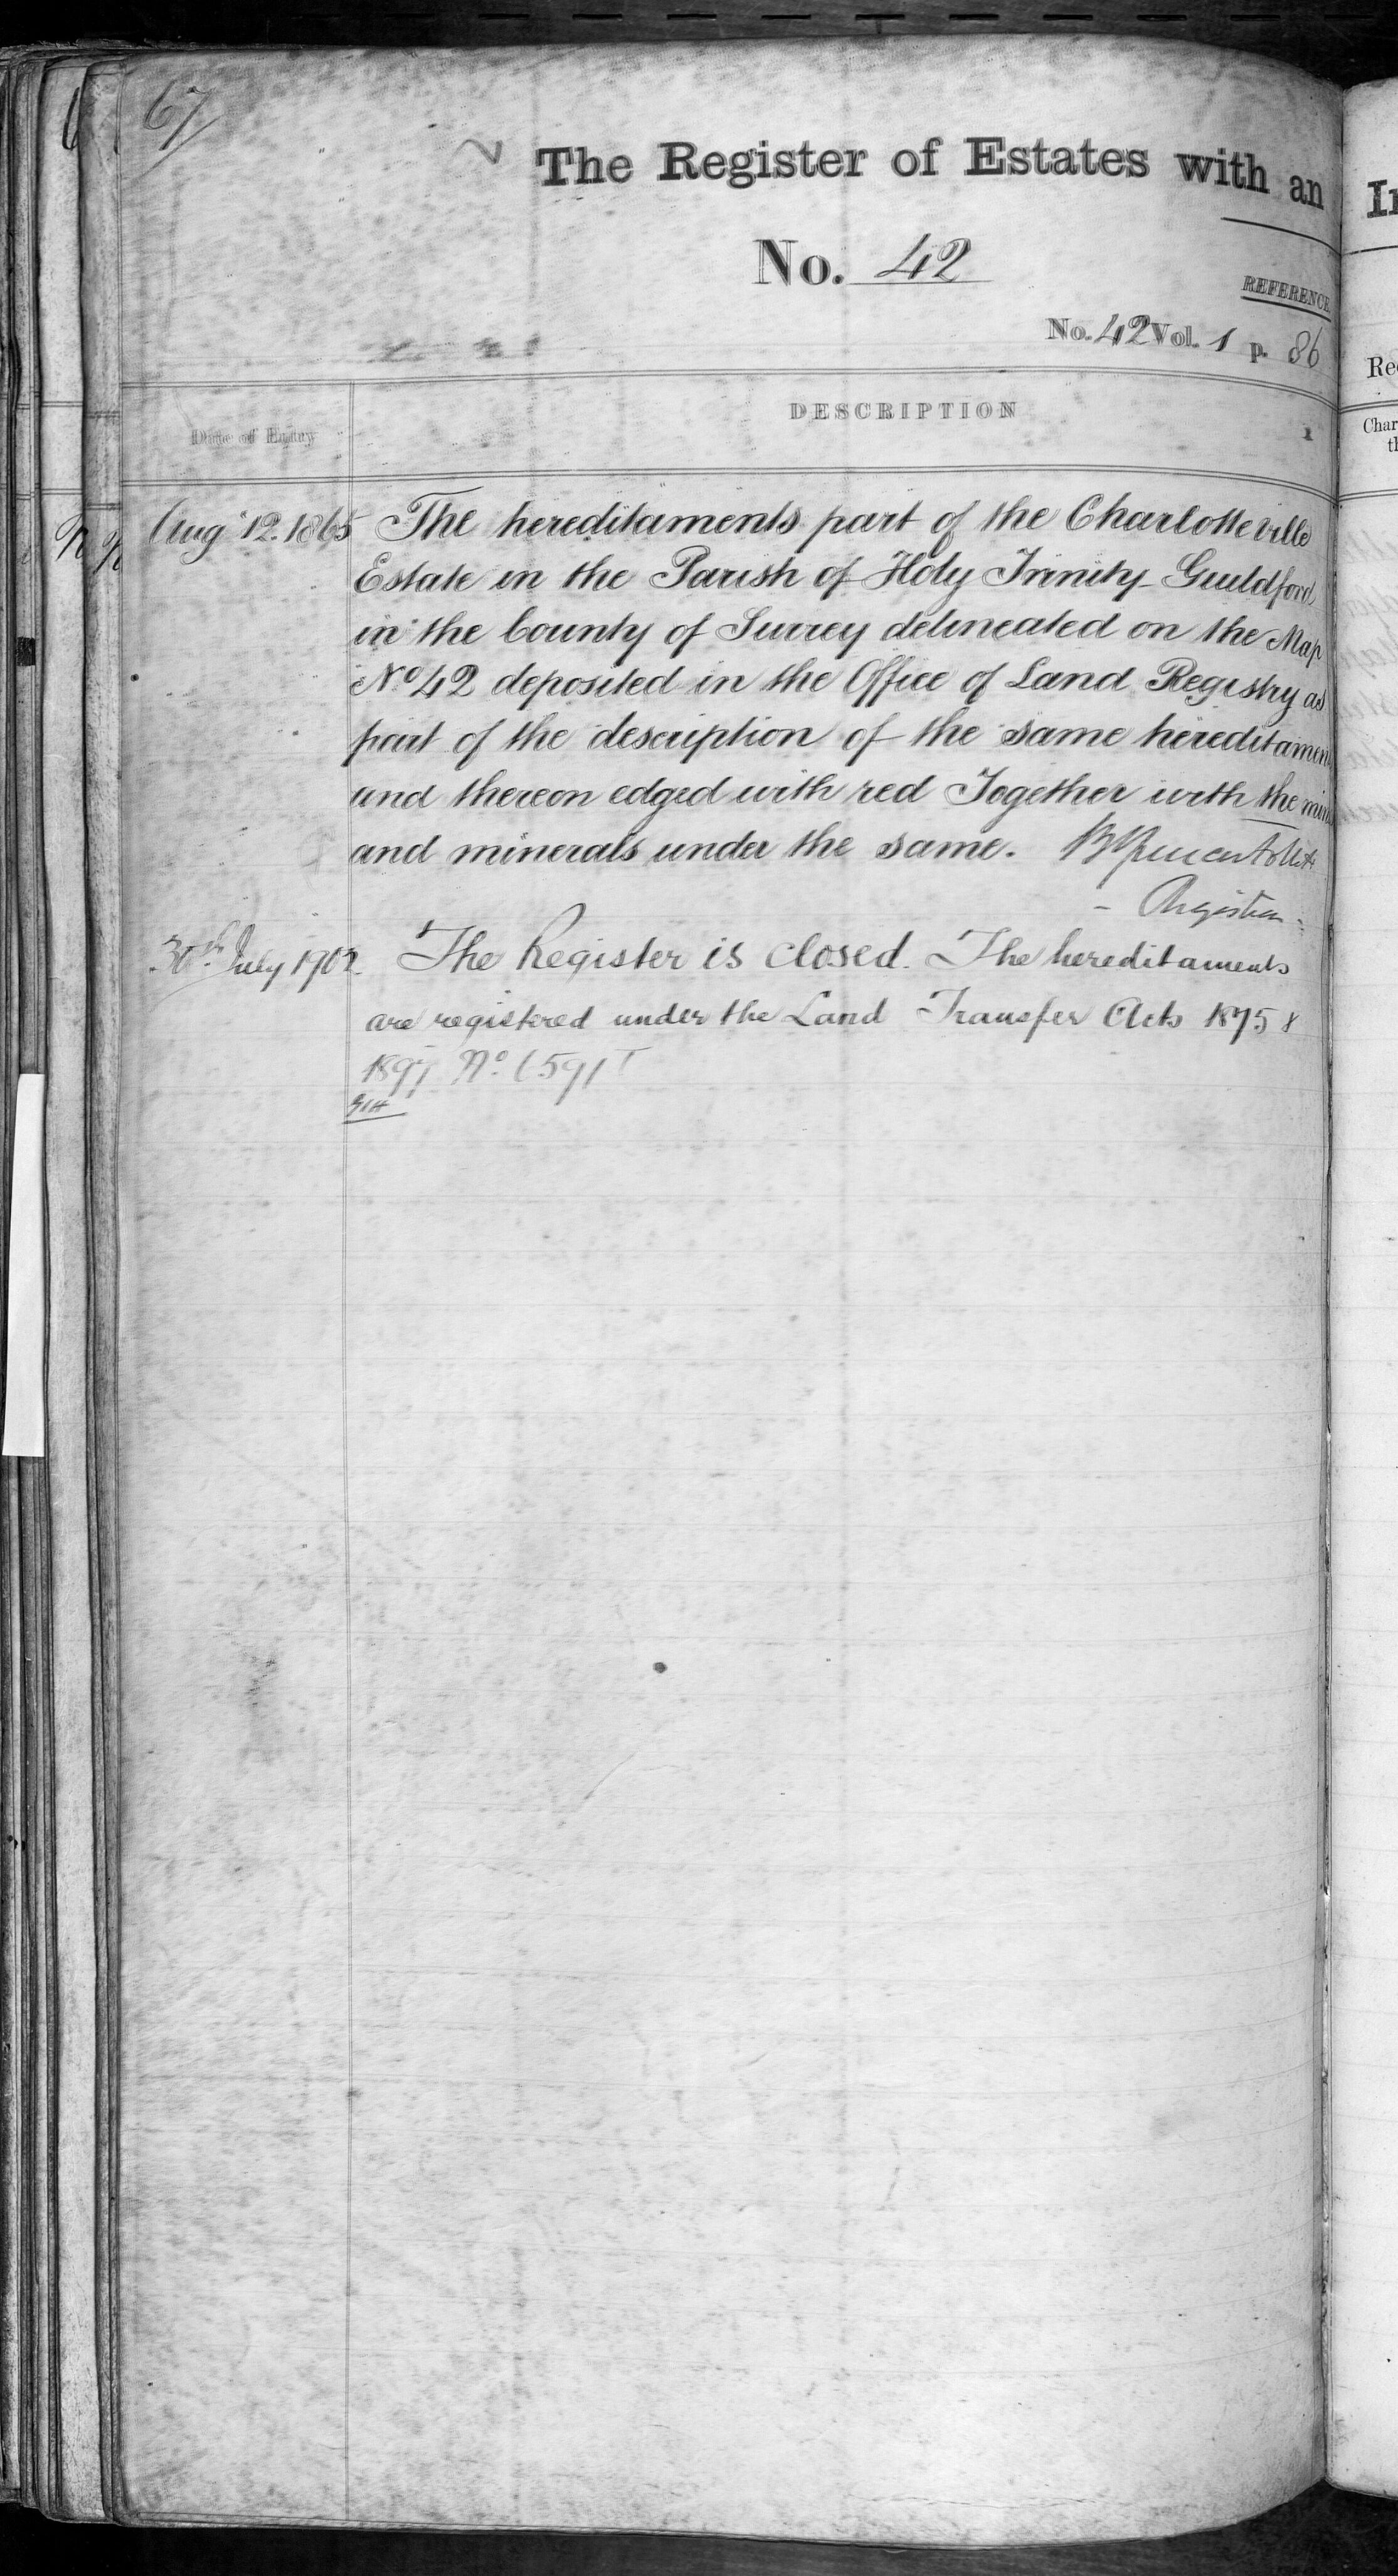 67
The Register of Estates with an
No. 42
REFERENCE
No. 42 Vol. 1 p. 86
Date of Entry
DESCRIPTION
1
Aug 12. 1865 The hereditaments part of the Charlotteville
Estate in the Parish of Holy Trinity Guildford
in the County of Surrey delineated on the Map
No 42 deposited in the Office of Land Registry as
part of the description of the same hereditamen
and thereon edged with red Together with the min
and minerals under the same.
Registrar
30th July 1902. The Register is closed. The hereditaments
are registered under the Land Transfer Acts 1875 &
1897 No.